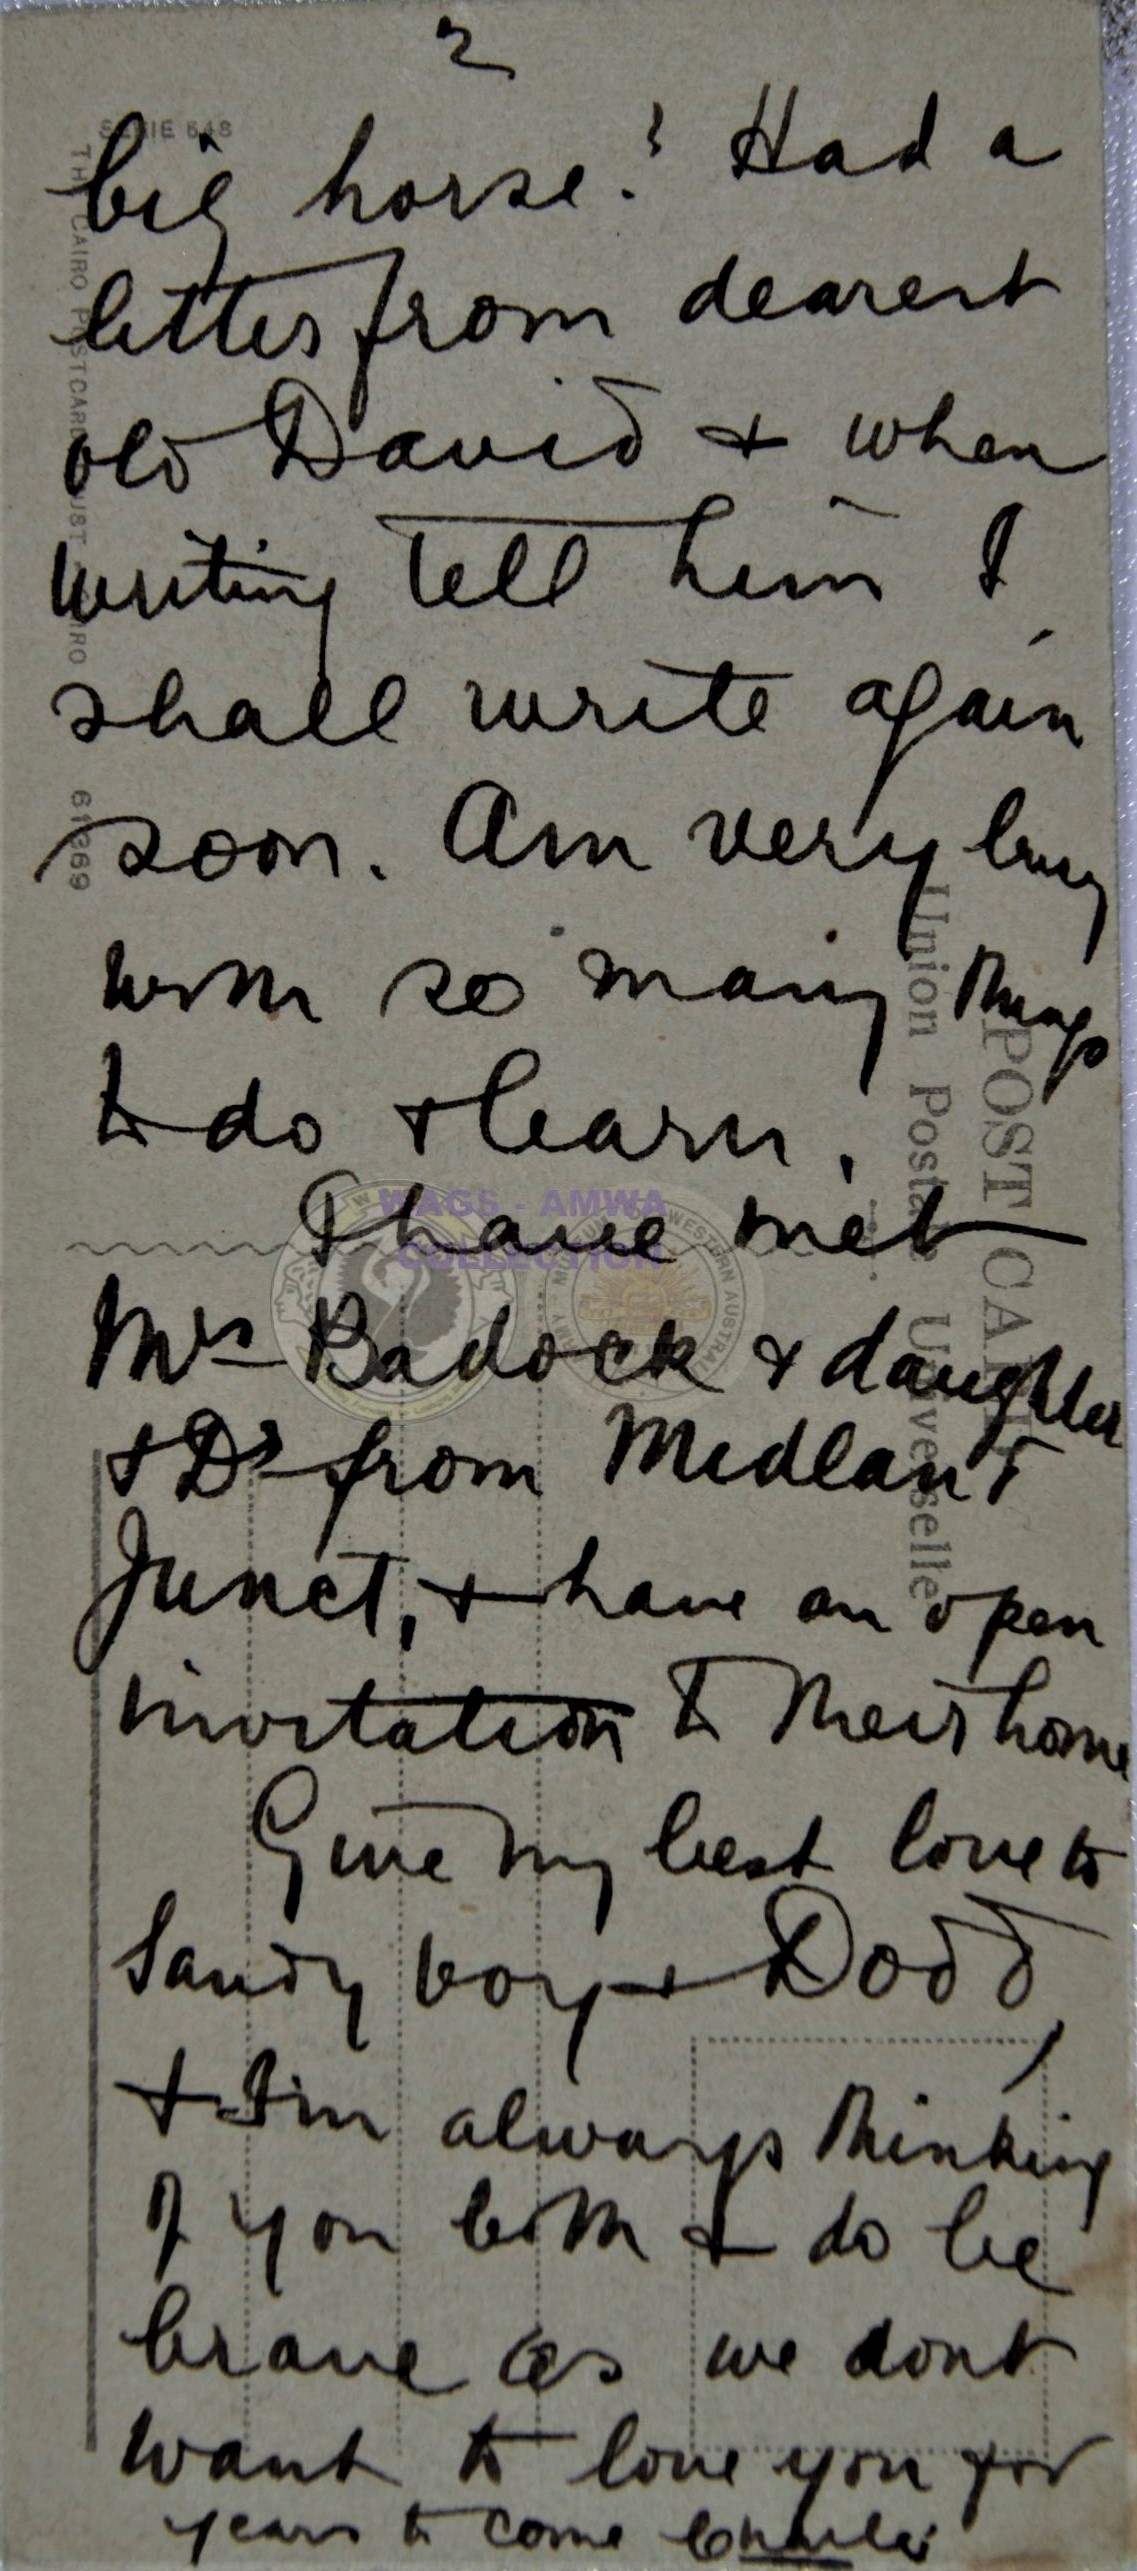 2
big horse? Had a
letter from dearest
old David + when
writing tell him I
shall write again
soon. Am very busy
with so many things
to do + learn.
I have met
Mrs Badock + daughter
+ Dr from Midland
Junct, + have an open
invitation to their home
Give my best love to
Sandy boy + Dodd,
+ I'm always thinking
of you both + do be
brave as we dont
want to love you for
years to come Charlie
SERIE 648
THE CAIRO POSTCARD TRUST CAIRO
61369
POST CARD
Union Postale Universelle
WAGS - AMWA
COLLECTION